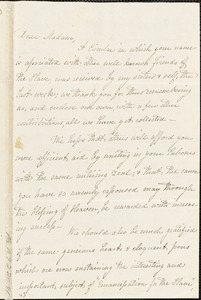 Dear Madam,
A Circular in which your name
is associated with other well known friends of
the Slave was received by my sister & self the
last week; we thank you for thus remembering
us, and enclose you now, with a few other
contributions, all we have yet collected —
We hope that others will afford you
more efficient aid by uniting in your labours
with the same untiring zeal, & that the cause
you have so warmly espoused may through
the blessing of Heaven be rewarded with increas-
ing success —
We should also be much gratified
if the same generous hearts & eloquent pens
which are now sustaining the interesting and
important subject of Emancipation for the Slave